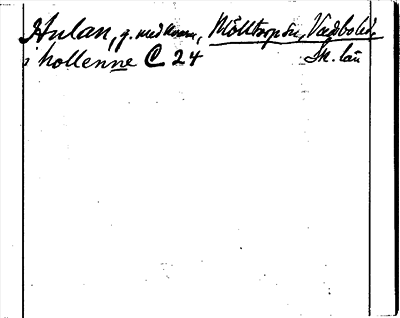 Hulan, g. med kvarn, Mölltorps sn, Vadsbo hd.
i hollenne C 24 Sk. län